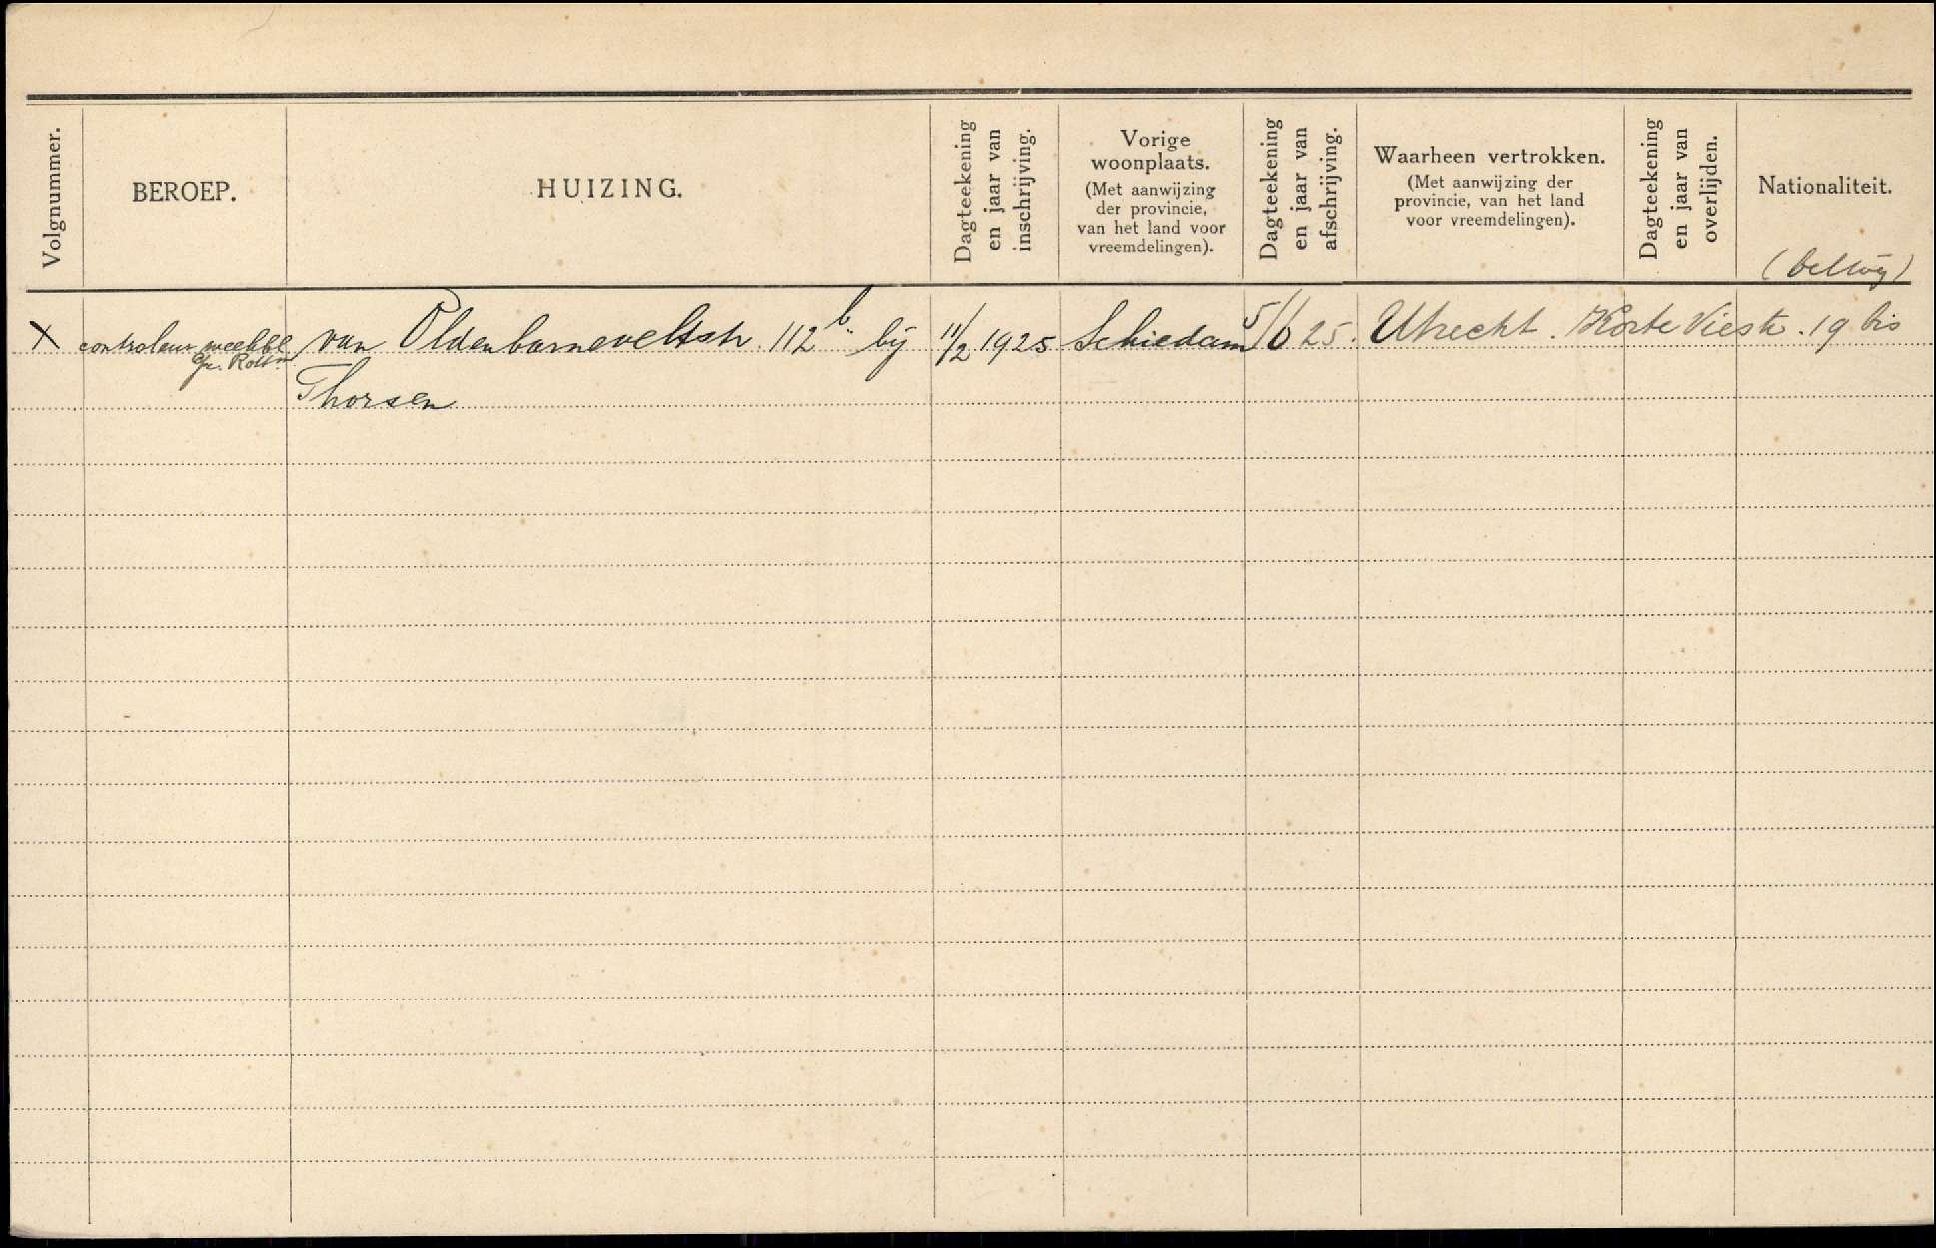 Volgnummer.
BEROEP.
HUIZING.
Dagteekening
en jaar van
inschrijving.
Vorige
woonplaats.
(Met aanwijzing
der provincie,
van het land voor
vreemdelingen).
Dagteekening
en jaar van
afschrijving.
Waarheen vertrokken.
(Met aanwijzing der
provincie, van het land
voor vreemdelingen).
Dagteekening
en jaar van
overlijden.
Nationaliteit.
X controleur van Oldenbarneveltstr. 112 b bij 11/2 1925 Schiedam 5/6 25. Utrecht. Korte Viestr. 19 bis
Thorsen